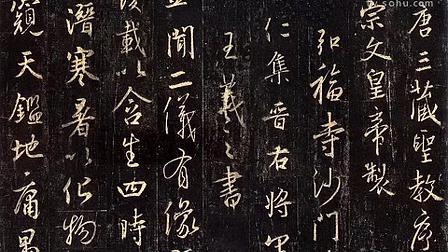 唐三藏聖教序
宗文皇帝製
弘福寺沙門
仁集晉右將軍
王羲之書
聞二儀有像
載以含生四時
潛寒暑以化物
窺天鑑地庸愚
sohu.com